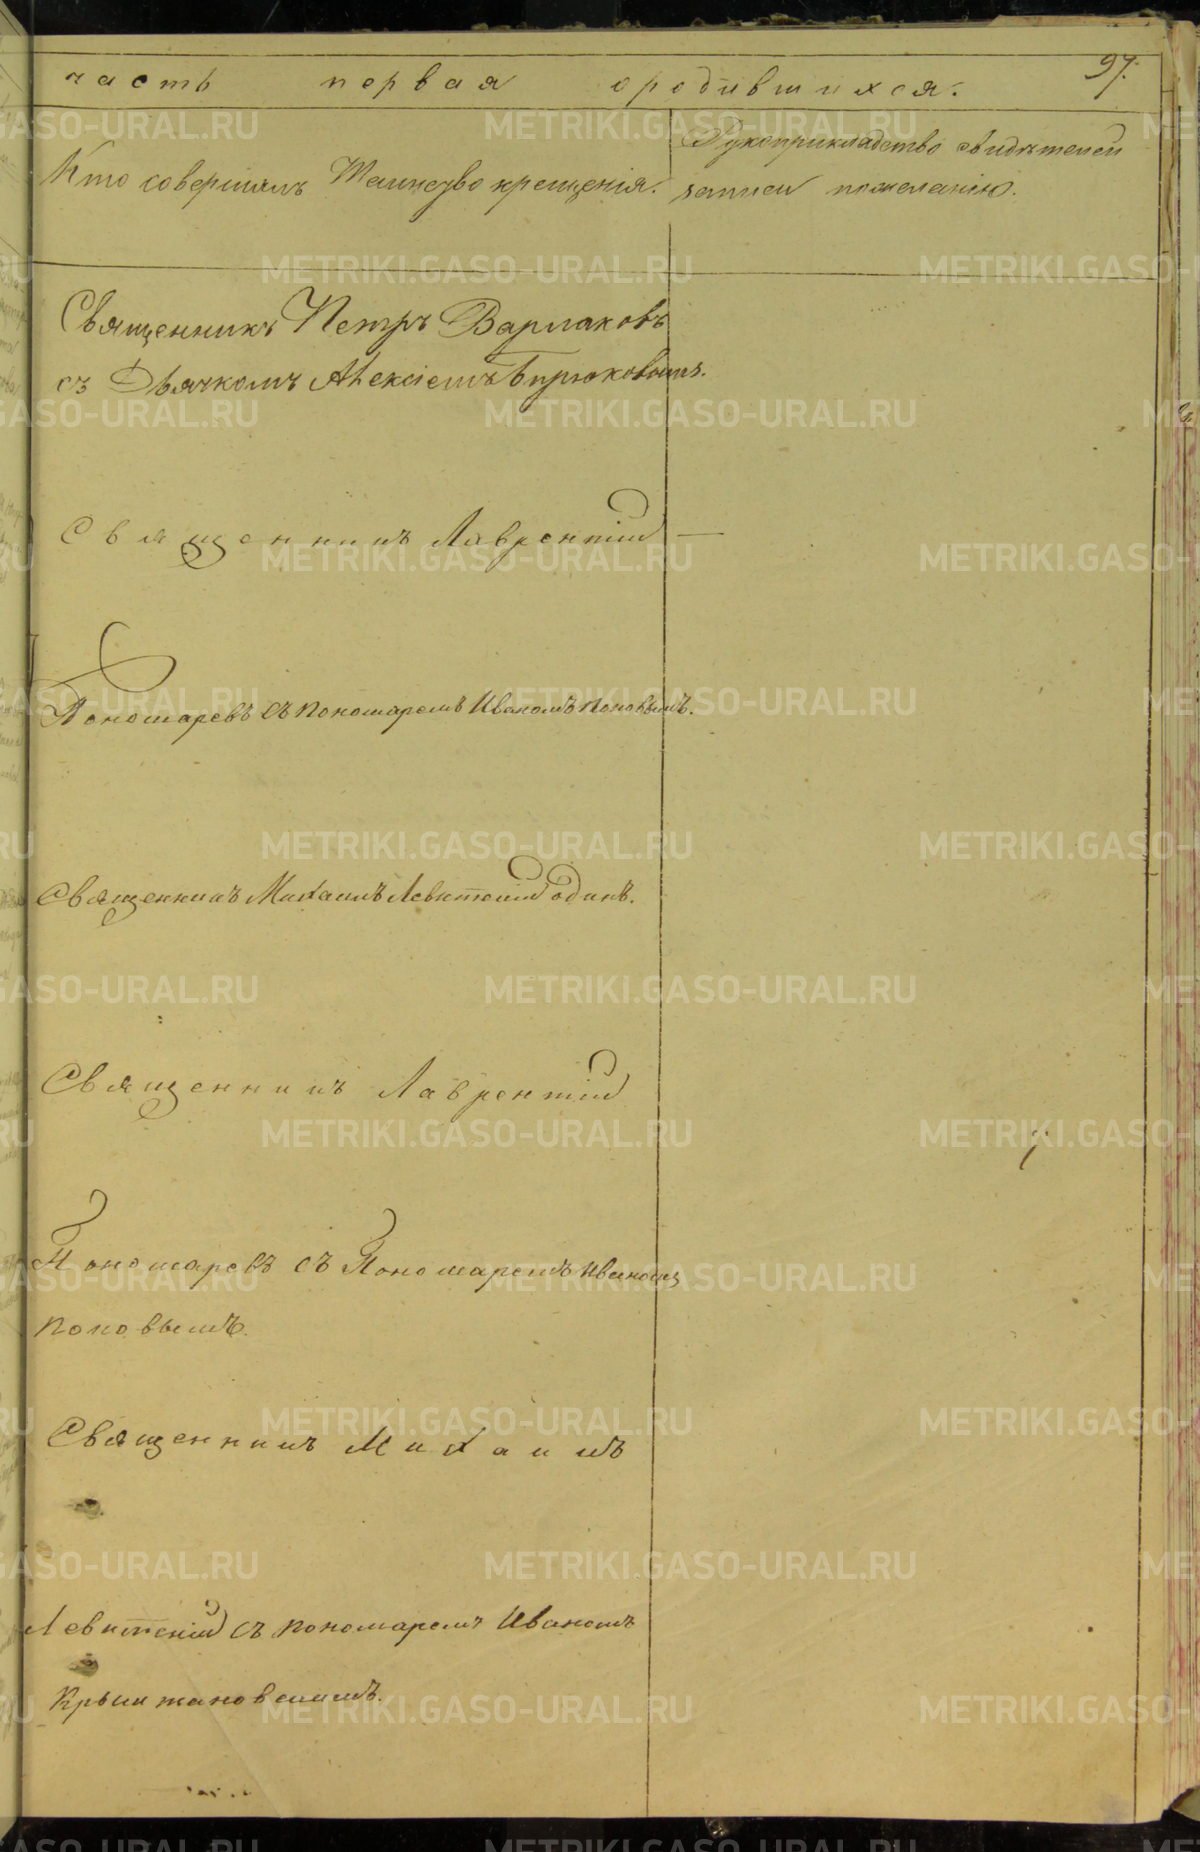 часть первая о родившихся.
97.
Кто совершалъ Таинство крещенія.
Рукоприкладство свидѣтелей
записи по желанію.
Священникъ Петръ Варлаковъ
съ Дьячкомъ Алексіемъ Бирюковымъ.
Священникъ Лаврентій —
Пономаревъ съ пономаремъ Иваномъ Поповымъ.
Священникъ Михаилъ Левитскій одинъ.
Священникъ Лаврентій
Пономаревъ съ Пономаремъ Иваномъ
Поповымъ.
Священникъ Михаилъ
Левитскій съ пономаремъ Иваномъ
Крыжановскимъ.
METRIKI.GASO-URAL.RU